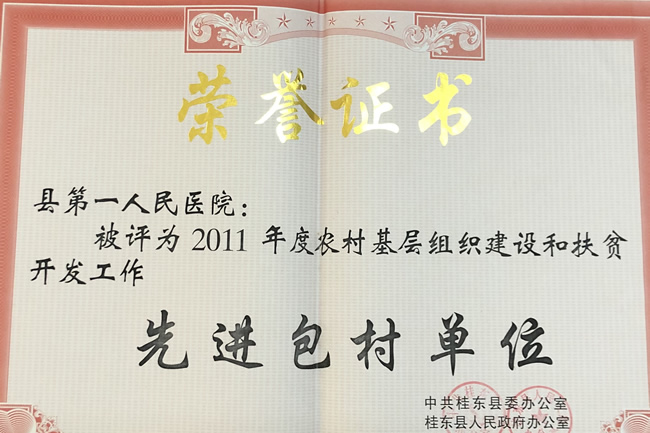 荣誉证书
县第一人民医院：
被评为2011年度农村基层组织建设和扶贫
开发工作
先进包村单位
中共桂东县委办公室
桂东县人民政府办公室